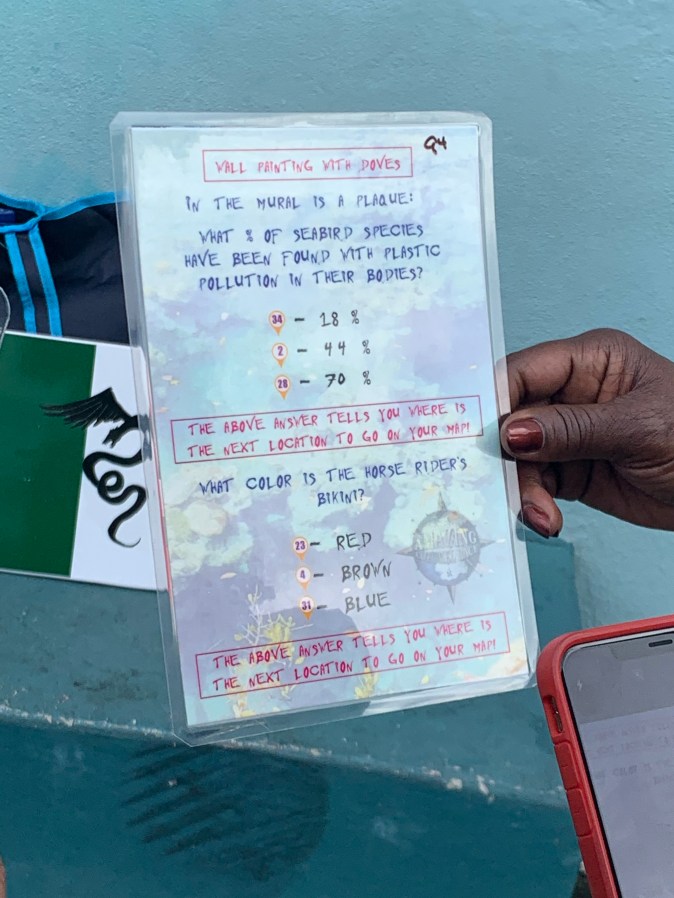 Q4
WALL PAINTING WITH DOVES
IN THE MURAL IS A PLAQUE:
WHAT % OF SEABIRD SPECIES
HAVE BEEN FOUND WITH PLASTIC
POLLUTION IN THEIR BODIES?
34 - 18 %
2 - 44 %
28 - 70 %
THE ABOVE ANSWER TELLS YOU WHERE IS
THE NEXT LOCATION TO GO ON YOUR MAP!
WHAT COLOR IS THE HORSE RIDER'S
BIKINI?
23 - RED
4 - BROWN
31 - BLUE
THE ABOVE ANSWER TELLS YOU WHERE IS
THE NEXT LOCATION TO GO ON YOUR MAP!